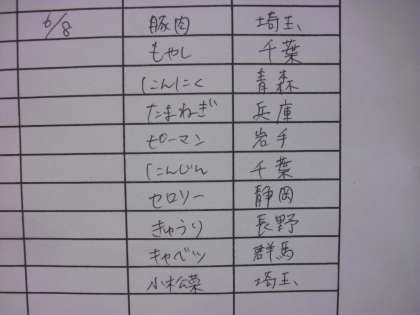 6/8 豚肉 埼玉
もやし 千葉
にんにく 青森
たまねぎ 兵庫
ピーマン 岩手
にんじん 千葉
セロリー 静岡
きゅうり 長野
キャベツ 群馬
小松菜 埼玉